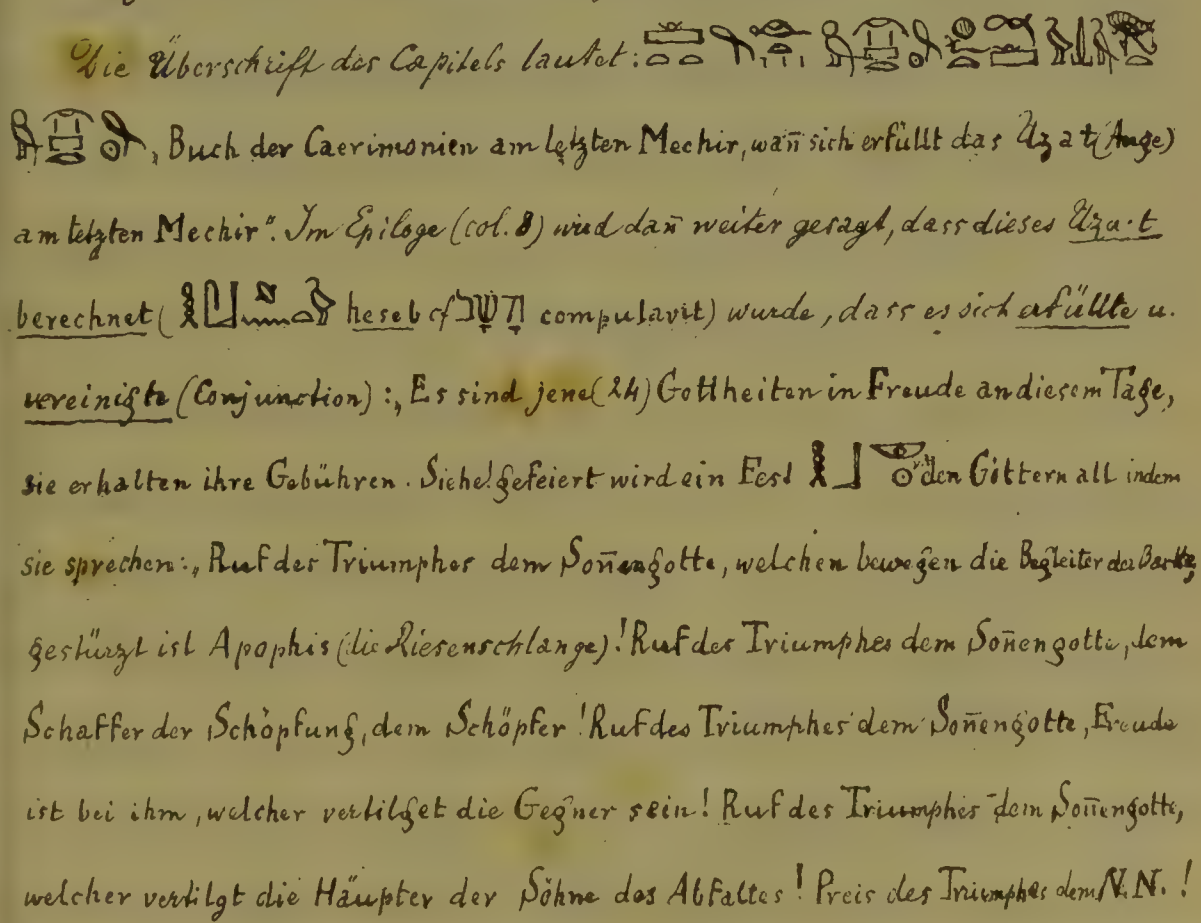 Die Überschrift des Capitels lautet:
„Buch der Caerimonien am letzten Mechir, wan̄ sich erfüllt das Uza·t (Auge)
am letzten Mechir". Im Epiloge (col. 8) wird dan̄ weiter gesagt, dass dieses Uza·t
berechnet ( heseb cf חָשַׁב computavit) wurde, dass es sich erfüllte u.
vereinigte (Conjunction): „Es sind jene (24) Gottheiten in Freude an diesem Tage,
sie erhalten ihre Gebühren. Siehe! gefeiert wird ein Fest den Göttern all indem
sie sprechen: „Ruf des Triumphes dem Son̄engotte, welchen bewegen die Begleiter der Barke,
gestürzt ist Apophis (die Riesenschlange)! Ruf des Triumphes dem Son̄engotte, dem
Schaffer der Schöpfung, dem Schöpfer! Ruf des Triumphes dem Son̄engotte, Freude
ist bei ihm, welcher vertilget die Gegner sein! Ruf des Triumphes dem Son̄engotte,
welcher vertilgt die Häupter der Söhne des Abfalles! Preis des Triumphes dem N.N.!